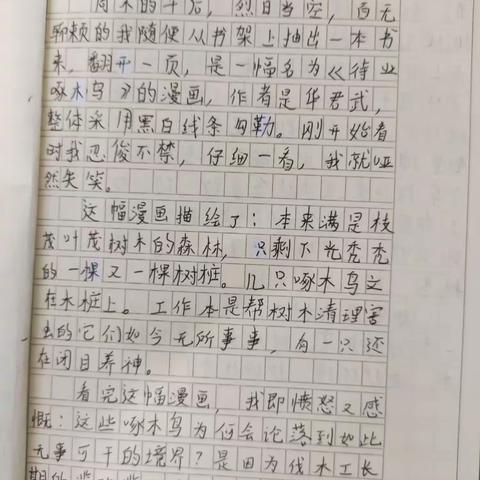 周末的午后，烈日当空，百无
聊赖的我随便从书架上抽出一本书
来，翻开一页，是一幅名为《待业
啄木鸟》的漫画，作者是华君武，
整体采用黑白线条勾勒。刚开始看
时我忍俊不禁，仔细一看，我就哑
然失笑。
这幅漫画描绘了：本来满是枝
茂叶茂树木的森林，只剩下光秃秃
的一棵又一棵树桩。几只啄木鸟立
在木桩上。工作本是帮树木清理害
虫的它们如今无所事事，有一只还
在闭目养神。
看完这幅漫画，我即愤怒又感
慨：这些啄木鸟为何会论落到如此
无事可干的境界？是因为伐木工长
期的